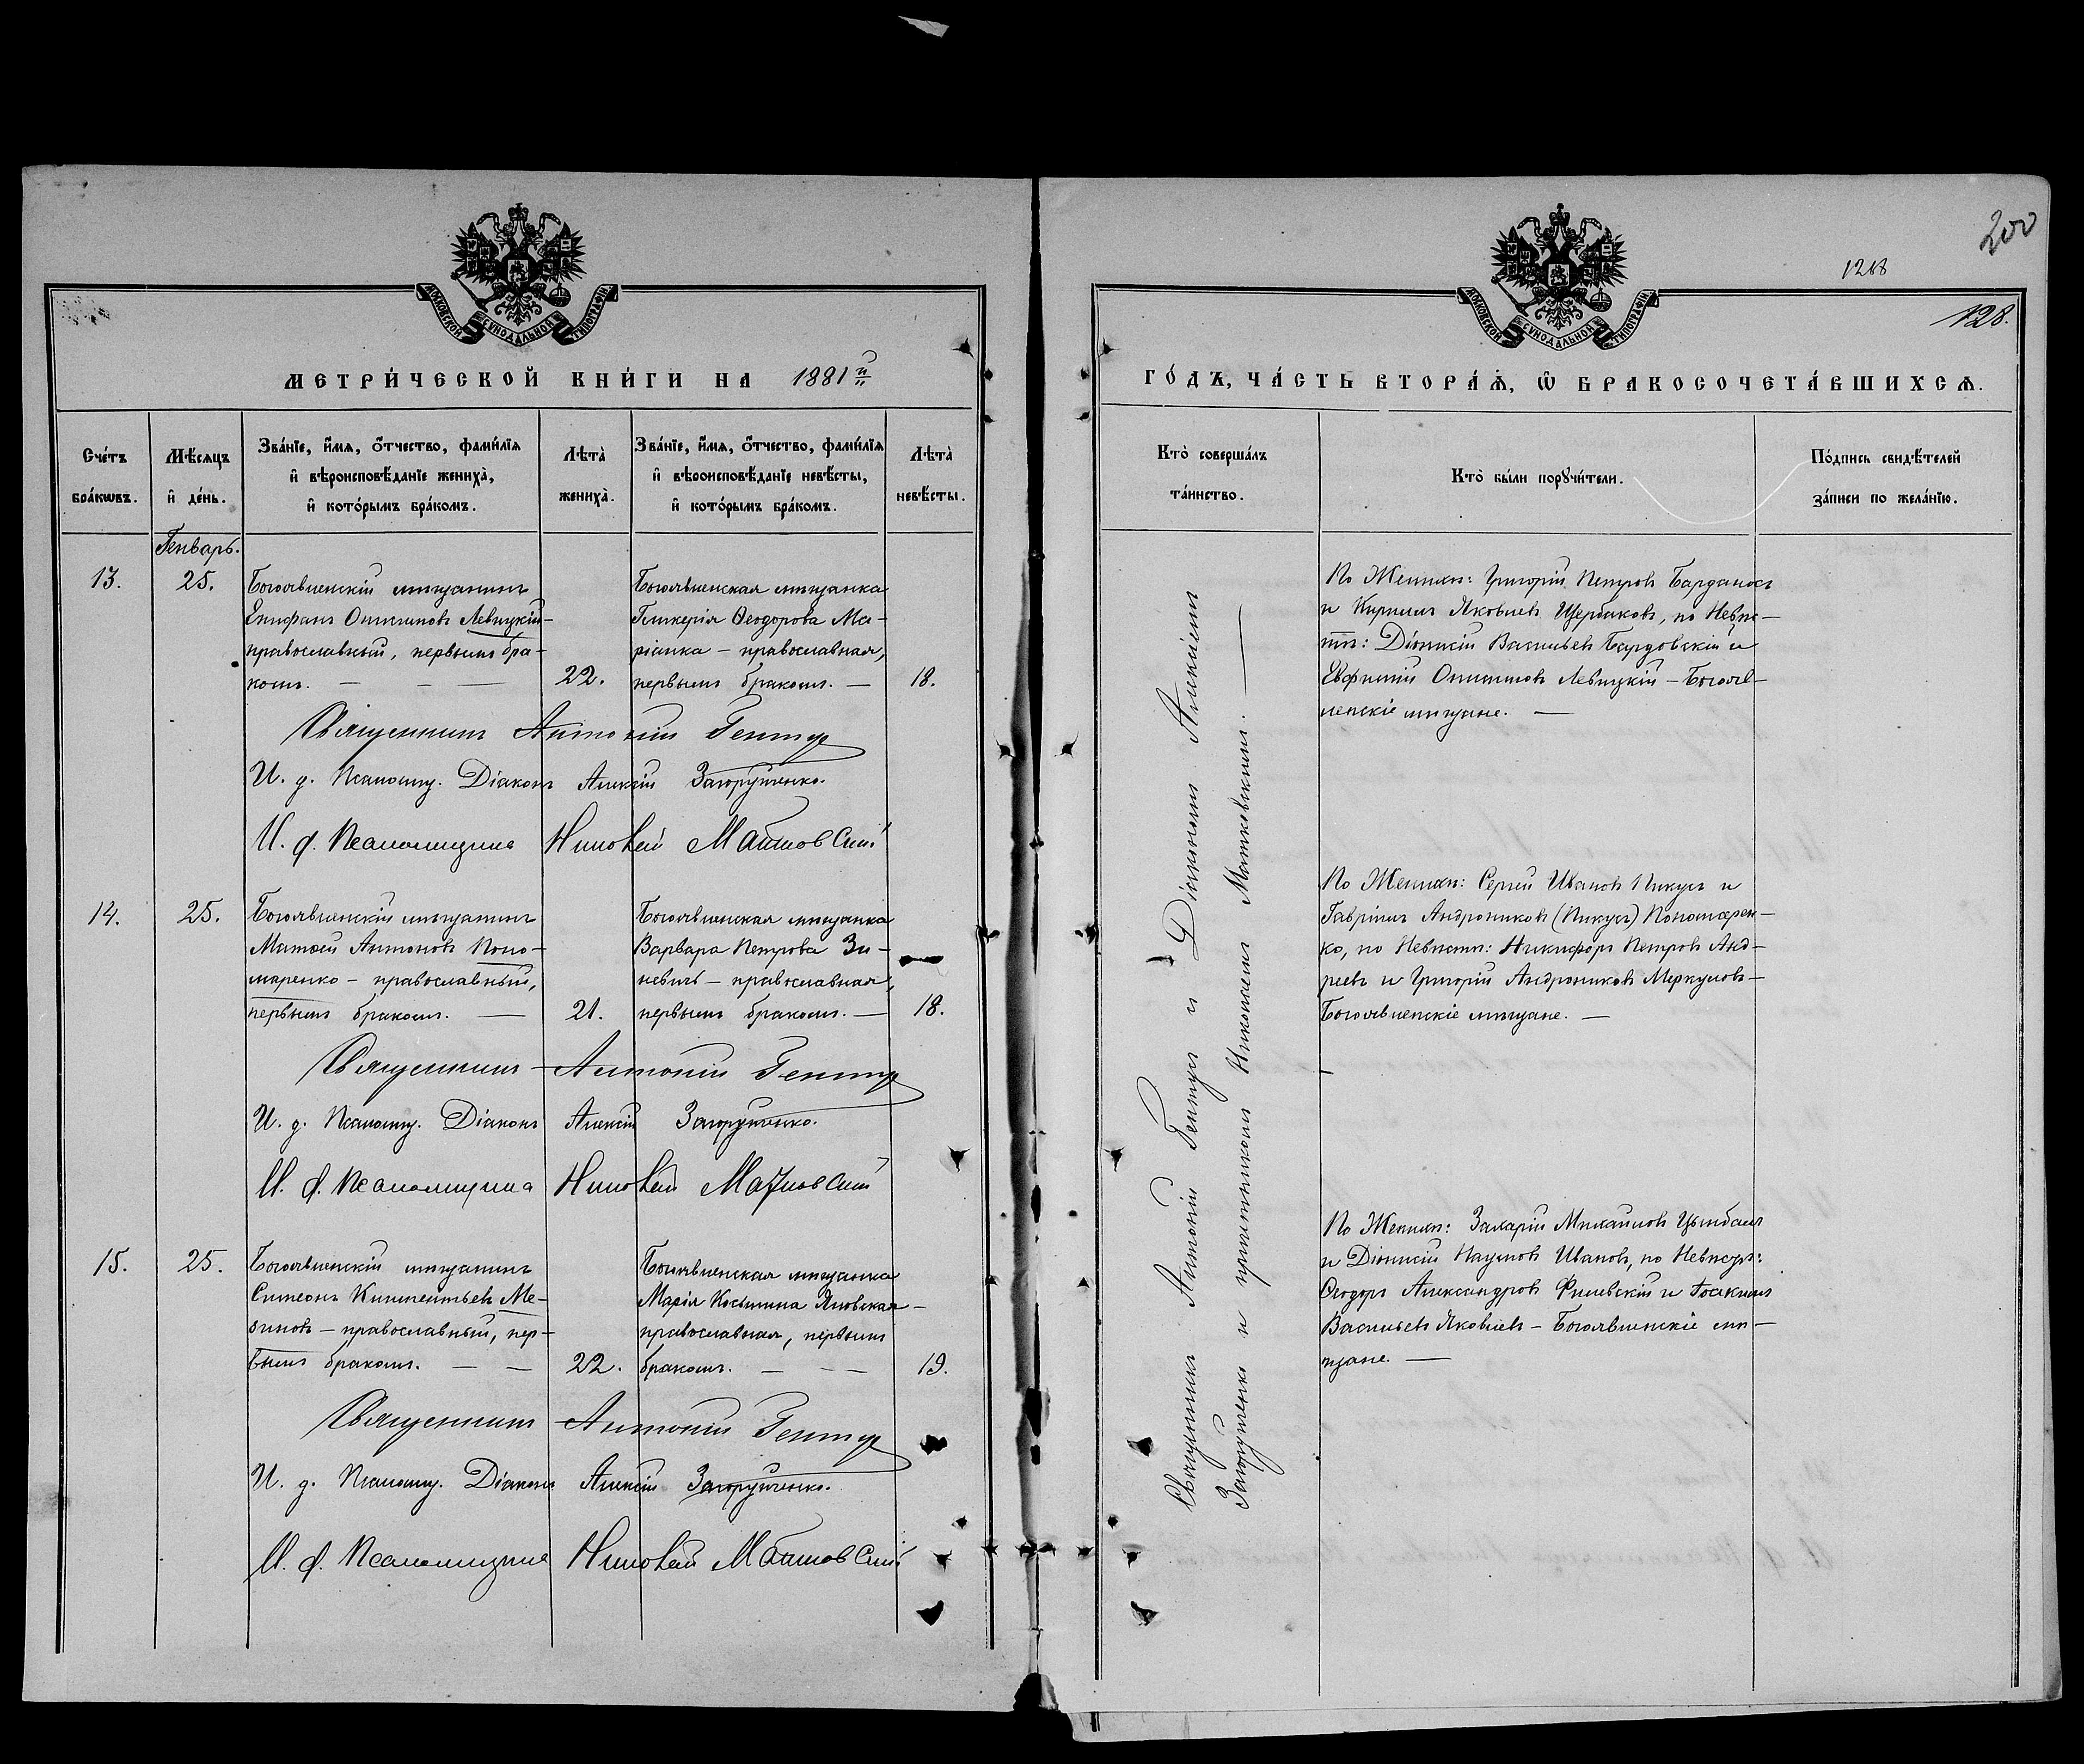 МОСКОВСКОЙ СѴНОДАЛЬНОЙ ТИПОГРАФІИ
МЕТРИ́ЧЕСКОЙ КНИ́ГИ НА 1881й
Сче́тъ бра́кωвъ.
Мѣ́сяцъ и҆ де́нь.
Зва́нїе, и҆́мѧ, ѻ҆́тчество, фами́лїѧ
и҆ вѣроисповѣ́данїе жениха̀,
и҆ кото́рымъ бра́комъ.
Лѣта̀ жениха̀.
Зва́нїе, и҆́мѧ, ѻ҆́тчество, фами́лїѧ
и҆ вѣроисповѣ́данїе невѣ́сты,
и҆ кото́рымъ бра́комъ.
Лѣта̀ невѣ́сты.
Генварь.
13.
25.
Богоявленскій мѣщанинъ
Епифанъ Левицкій—
православный, первымъ бра-
комъ. — — —
22.
Богоявленская мѣщанка
Гликерія Ѳеодорова Ма-
ріанка — православная,
первымъ бракомъ. —
18.
Священникъ Антоній Гентуъ
И. д. Псаломщ. Діаконъ Алексій Загорульченко.
И. д. Псаломщика Николай Матковскій
14.
25.
Богоявленскій мѣщанинъ
Матѳей Антоновъ Поно-
маренко — православный,
первымъ бракомъ. —
21.
Богоявленская мѣщанка
Варвара Петрова Зи-
невичъ — православная,
первымъ бракомъ. —
18.
Священникъ Антоній
И. д. Псаломщ. Діаконъ Алексій
И. д. Псаломщика Николай Матковскій
15.
25.
Богоявленскій мѣщанинъ
Симеонъ Климентьевъ Ме-
зиновъ — православный, пер-
вымъ бракомъ. — —
22.
Богоявленская мѣщанка
Марія Косьмина Яновская —
православная, первымъ
бракомъ. — — —
19.
Священникъ Антоній
И. д. Псаломщ. Діаконъ Алексій
И. д. Псаломщика Николай Матковскій
200
1268
128.
МОСКОВСКОЙ СѴНОДАЛЬНОЙ ТИПОГРАФІИ
ГО́ДЪ, ЧА́СТЬ ВТОРА́Ѧ, Ѡ҆ БРАКОСОЧЕТА́ВШИХСѦ.
Кто̀ соверша́лъ
та́инство.
Кто̀ бы́ли порꙋчи́тели.
По́дпись свидѣ́телей
за́писи по жела́нїю.
Священникъ Антоній и Діакономъ Алексіемъ
и причетникомъ Николаемъ Матковскимъ. —
По Женихѣ: Григорій Петровъ
и Кириллъ Яковлевъ Щербаковъ, по Невѣс—
тѣ: Діонисій Васильевъ Бардовскій и
Евфимій Левицкій — Богояв—
ленскіе мѣщане. —
По Женихѣ: Сергій Ивановъ Пикусъ и
Гавріилъ Андрониковъ (Пикусъ) Пономарен—
ко, по Невѣстѣ: Никифоръ Петровъ Анд—
реевъ и Григорій Андрониковъ Меркуловъ—
Богоявленскіе мѣщане. —
По Женихѣ: Захарій Михаиловъ Цымбалъ
и Діонисій Наумовъ Ивановъ, по Невѣстѣ:
Ѳеодоръ Александровъ Филевскій и Іоакимъ
Васильевъ Яковлевъ — Богоявленскіе мѣ—
щане. —